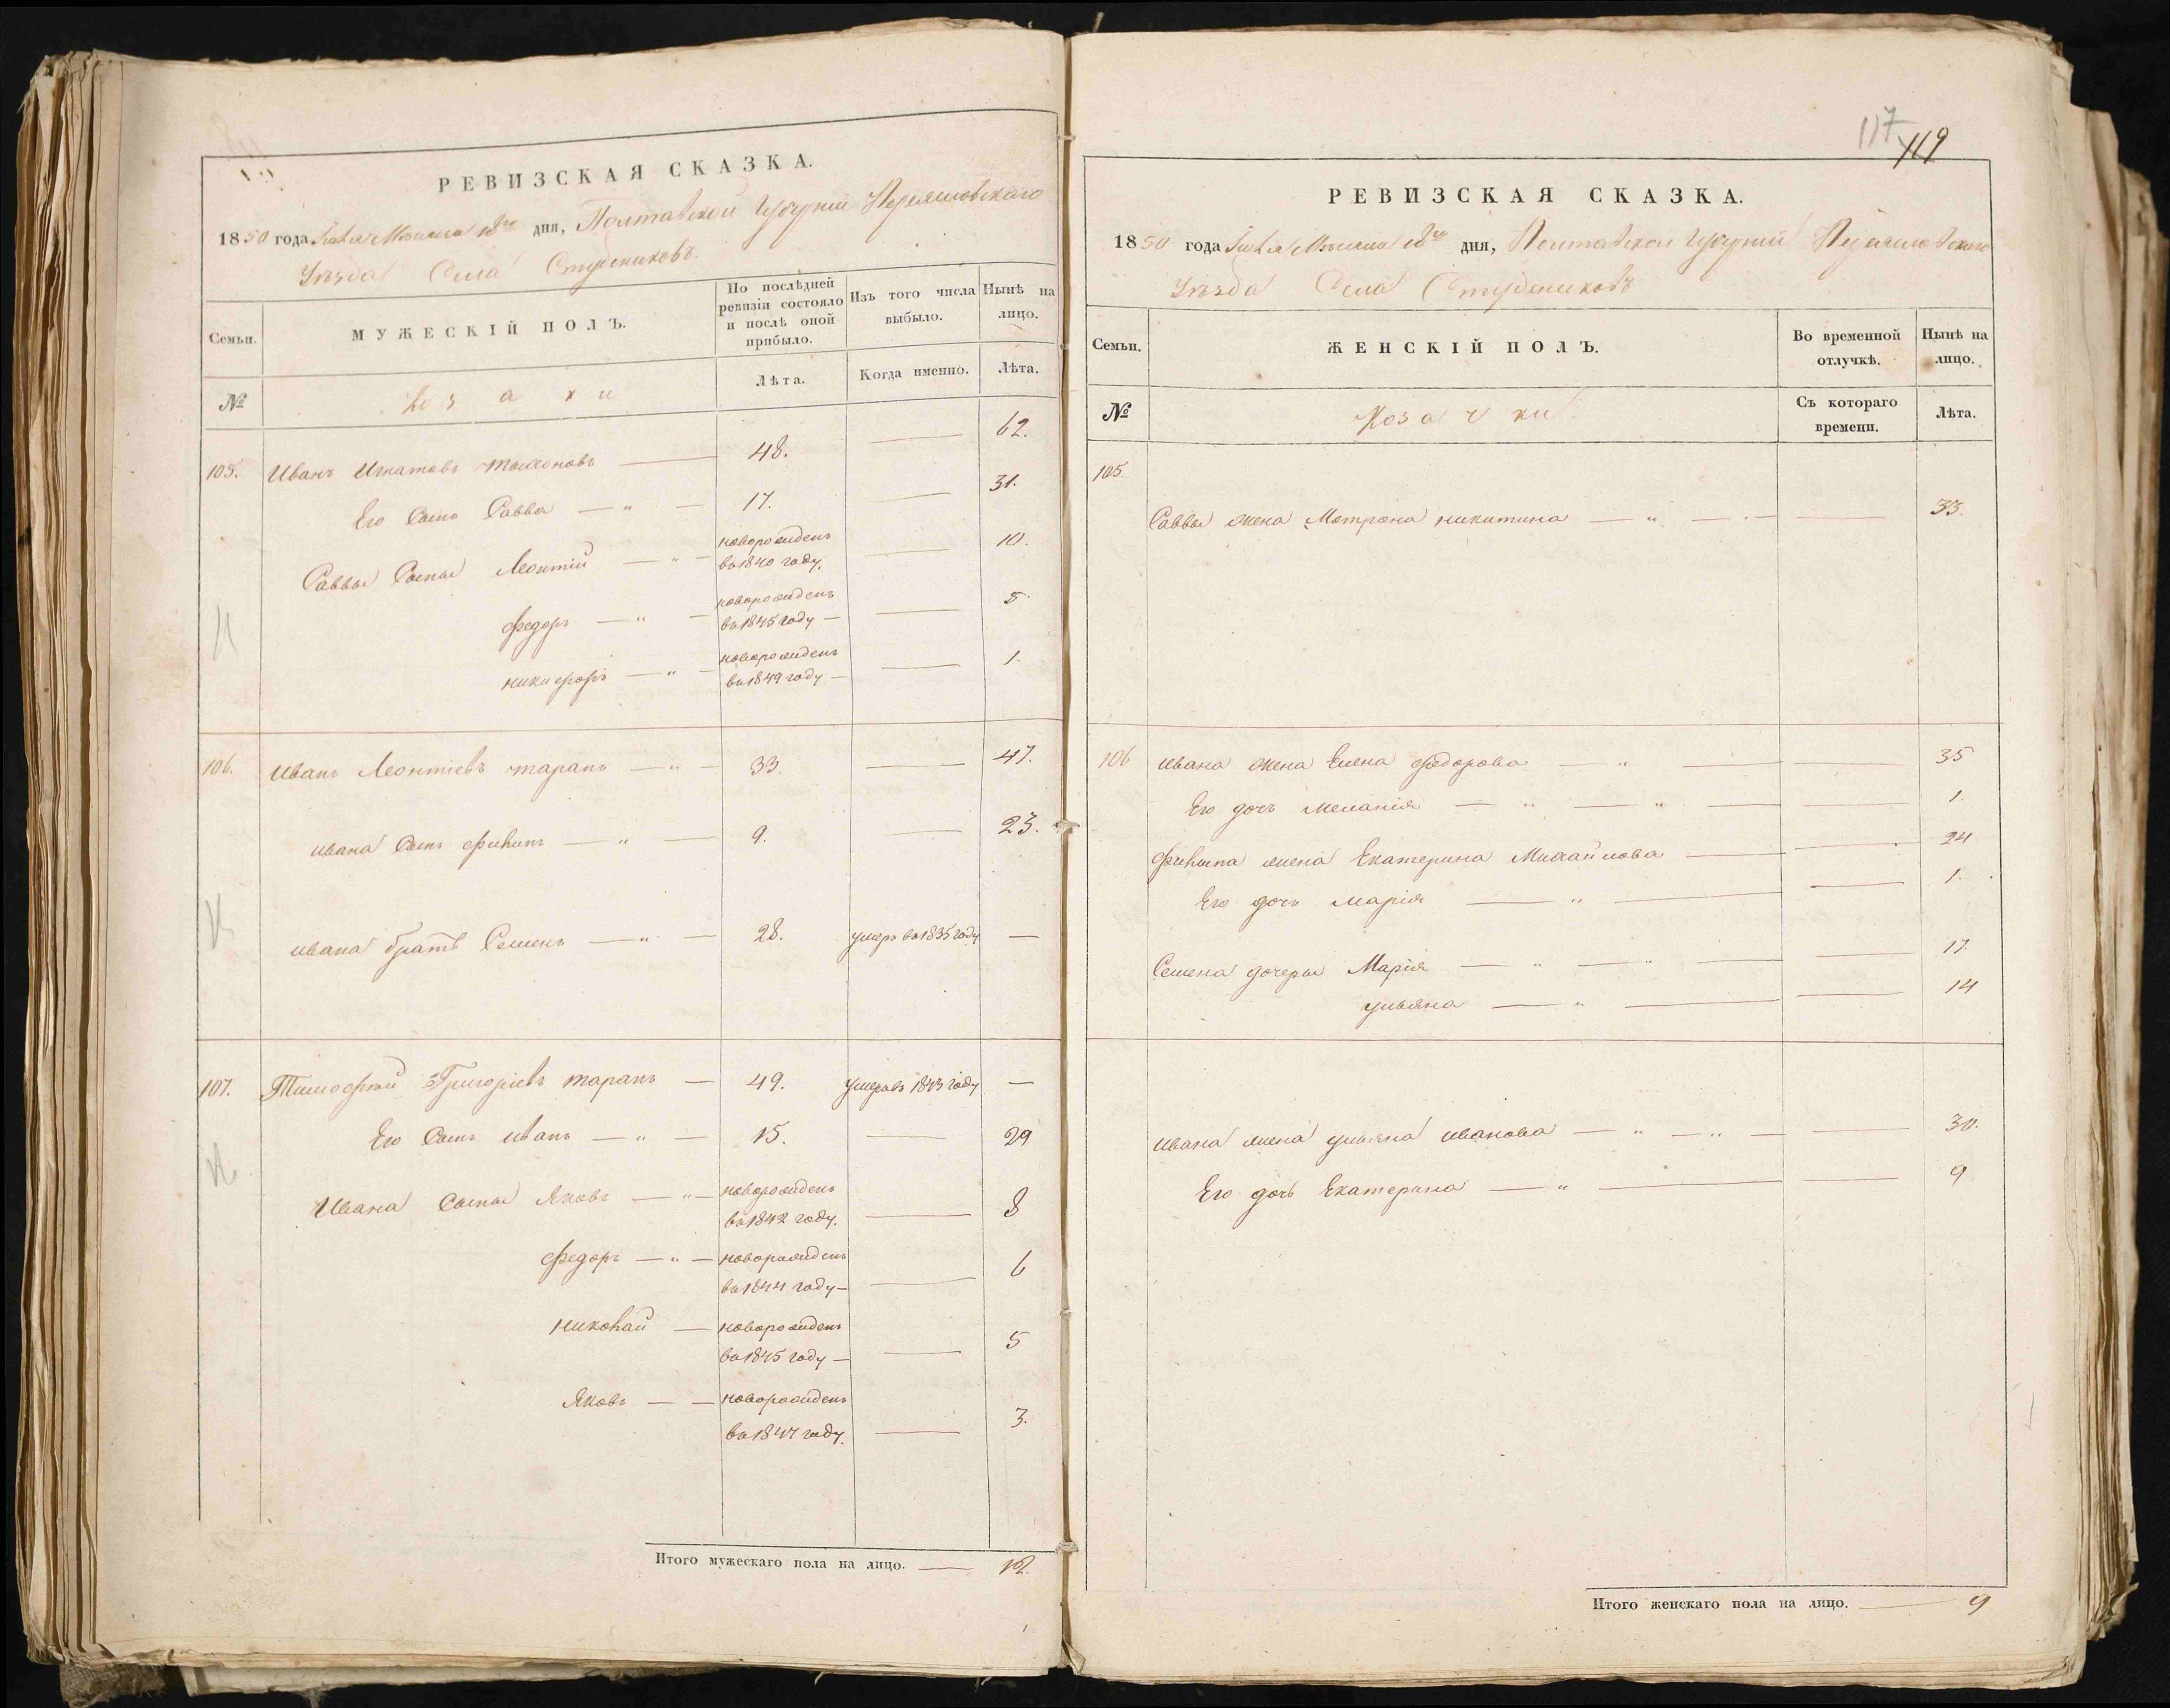 РЕВИЗСКАЯ СКАЗКА.
1850 года Мѣсяца 18го дня, Полтавской Губерніи Переяславскаго
Уѣзда Села Студениковъ
Семьи.
МУЖЕСКІЙ ПОЛЪ.
По послѣдней ревизіи состояло и послѣ оной прибыло.
Изъ того числа выбыло.
Нынѣ на лицо.
№
Козаки
Лѣта.
Когда именно.
Лѣта.
105. Иванъ Игнатовъ — 48. — 62.
Его Сынъ Савва — " — 17. — 31.
Саввы Сыны Леонтій — " — новорожденъ во 1840 году. — 10.
Федоръ — " — новорожденъ во 1845 году — — 5.
Никифоръ — " — новорожденъ во 1849 году — — 1.
106. Иванъ Леонтіевъ Таранъ — " — 33. — 47.
Ивана Сынъ Филипъ — " — 9. — 23.
Ивана братъ Семенъ — " — 28. умеръ во 1835 году —
107. Тимофѣй Григоріевъ Таранъ — 49. умеръ въ 1843 году —
Его Сынъ Иванъ — " — 15. — 29
Ивана Сыны Яковъ — " — новорожденъ во 1842 году. — 8
Федоръ — " — новорожденъ во 1844 году — — 6
Николай — новорожденъ во 1845 году — — 5
Яковъ — — новорожденъ во 1847 году. — 3.
Итого мужескаго пола на лицо. — 12.
117
119
РЕВИЗСКАЯ СКАЗКА.
1850 года Мѣсяца 18го дня, Полтавской Губерніи Переяславскаго
Уѣзда Села Студениковъ
Семьи.
ЖЕНСКІЙ ПОЛЪ.
Во временной отлучкѣ.
Нынѣ на лицо.
№
Козачки
Съ котораго времени.
Лѣта.
105.
Саввы жена Мотрона Никитина — " — — 33.
106 Ивана жена Елена Федорова — " — — 35
Его дочь Меланія — " — " — 1.
Филипа жена Екатерина Михайлова — — 24
Его дочь Марія — " — — 1.
Семена дочери Марія — " — " — — 17.
Ульяна — " — — 14
Ивана жена Ульяна Иванова — " — " — — 30.
Его дочь Екатерина — " — — 9
Итого женскаго пола на лицо. — 9